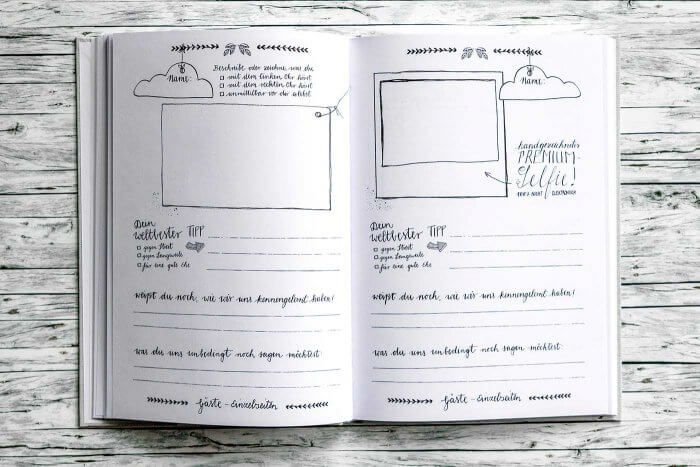 Name:
Beschreibe oder zeichne, was du
mit dem linken Ohr hörst
mit dem rechten Ohr hörst
unmittelbar vor dir siehst
Dein
weltbester TIPP
gegen Streit
gegen Langeweile
für eine gute Ehe
weißt du noch, wie wir uns kennengelernt haben?
was du uns unbedingt noch sagen möchtest:
Gäste-Einzelseiten
Name:
handgezeichnetes
PREMIUM-
Selfie!
Dein
weltbester TIPP
gegen Streit
gegen Langeweile
für eine gute Ehe
weißt du noch, wie wir uns kennengelernt haben?
was du uns unbedingt noch sagen möchtest:
Gäste-Einzelseiten